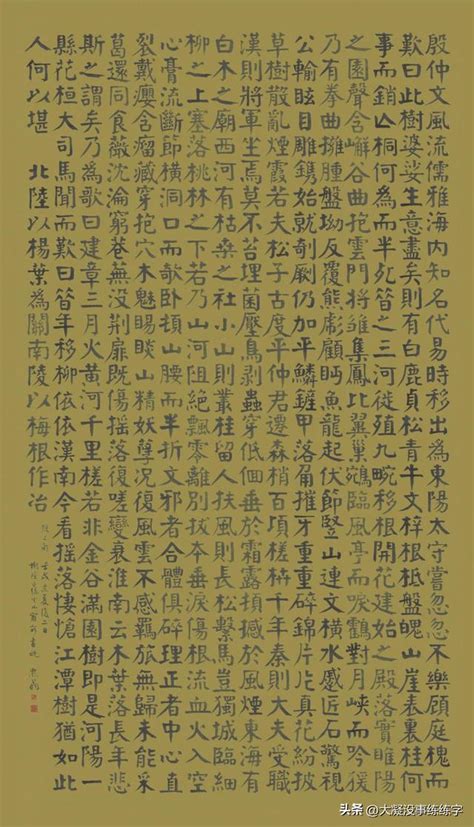 殷仲文風流儒雅海内知名代易時移出為東陽太守嘗忽忽不樂顧庭槐而
歎曰此樹婆娑生意盡矣則有白鹿貞松青牛文梓根柢盤魄山崖表裏桂何
事而銷亾桐何為而半死昔之三河徙殖九畹移根開花建始之殿落實睢陽
之園聲含嶰谷曲抱雲門將雛集鳳比翼巢鴛臨風亭而唳鶴對月峽而吟猨
乃有拳曲擁腫盤坳反覆熊彪顧眄魚龍起伏節豎山連文橫水蹙匠石驚視
公輸眩目雕鐫始就剞劂仍加平鱗鏟甲落角摧牙重重碎錦片片真花紛披
草樹散亂煙霞若夫松子古度平仲君遷森梢百頃槎枿千年秦則大夫受職
漢則將軍坐焉莫不苔埋菌壓鳥剥蟲穿低個垂於霜露撼頓於風煙東海有
白木之廟西河有枯桑之社小山則叢桂留人扶風則長松繫馬豈獨城臨細
柳之上塞落桃林之下若乃山河阻絶飄零離别拔本垂淚傷根流血火入空
心膏流斷節橫洞口而欹卧頓山腰而半折文邪者合體俱碎理正者中心直
裂戴癭含瘤藏穿抱穴木魅睗睒山精妖孽況復風雲不感羈旅無歸未能采
葛還同食薇沈淪窮巷蕪没荆扉既傷搖落復嗟變衰淮南云木葉落長年悲
斯之謂矣乃為歌曰建章三月火黄河千里槎若非金谷滿園樹即是河陽一
縣花桓大司馬聞而歎曰昔年移柳依依漢南今看搖落悽愴江潭樹猶如此
人何以堪 北陸以楊葉為關南陵以梅根作冶
头条 @大凝没事练练字